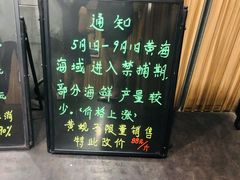 通知
5月1日-9月1日黄海
海域进入禁捕期
部分海鲜产量较
少。(价格上涨)
黄蚬不限量销售
特此改价